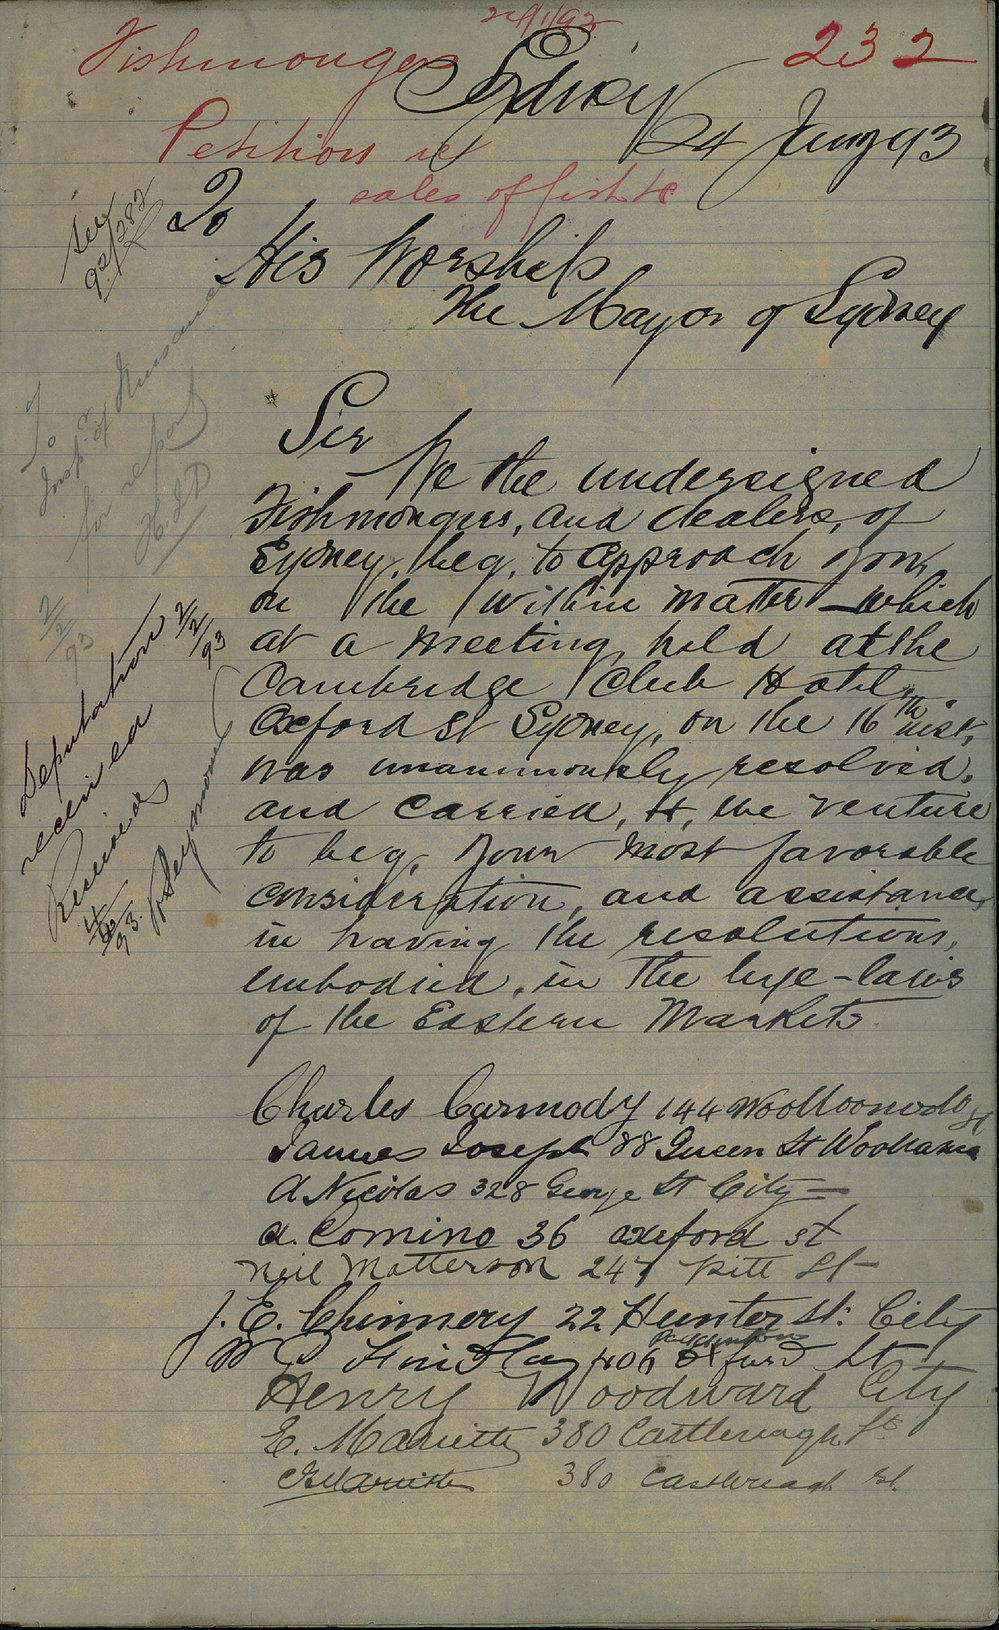 24/1/93
232
Fishmongers
Sydney
24 Jany 93
Petition re
sales of fish &c
See
92/282
To
His Worship
The Mayor of Sydney
To
Insp. of Nuisances
for report
2/2/93
Deputation
received
2/2/93
Received
Seymour
Sir
We the undersigned
Fishmongers, and dealers, of
Sydney, beg, to approach you
on the within matter - which
at a meeting, held at the
Cambridge Club Hotel,
Oxford St Sydney, on the 16th inst,
was unanimously resolved,
and carried, &, we venture
to beg, your most favorable
consideration, and assistance,
in having the resolutions,
embodied, in the bye-laws
of the Eastern Markets.
Charles Carmody 144 Woolloomooloo St
James Joseph 88 Queen St Woollahra
A Nicolas 328 George St City
A. Comino 36 Oxford st
Neil Matterson 247 Pitt St
J. E. Chinnery 22 Hunter St. City
Paddington
W P Finlay 406 Oxford St
Henry Woodward City
E. Mariette 380 Castlereagh St.
Mariette 380 Castlereagh St.